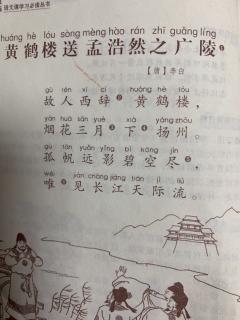 语文课学习必读丛书
huáng hè lóu sòng mèng hào rán zhī guǎng líng
黄鹤楼送孟浩然之广陵❶
【唐】李白
gù rén xī cí huáng hè lóu
故人西辞❷黄鹤楼，
yān huā sān yuè xià yáng zhōu
烟花三月❸下扬州。
gū fān yuǎn yǐng bì kōng jìn
孤帆远影碧空尽，
wéi jiàn cháng jiāng tiān jì liú
唯见长江天际流。